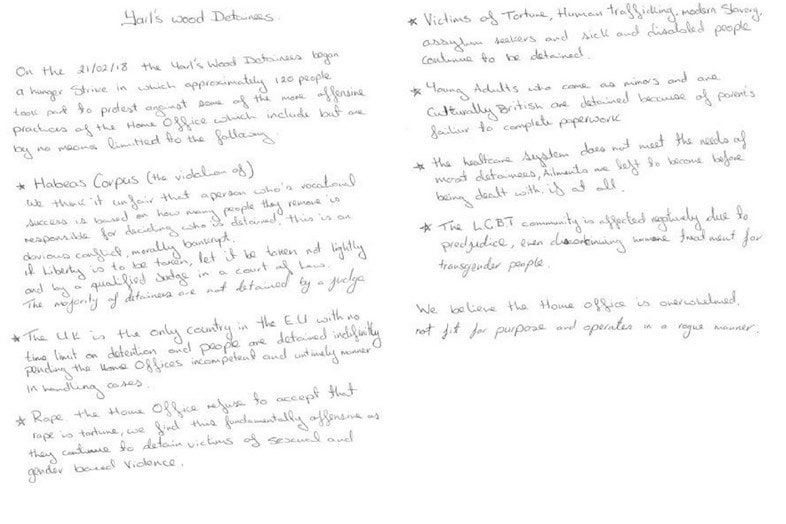 Yarl's Wood Detainees.
On the 21/02/18 the Yarl's Wood Detainees began
a hunger Strike in which approximately 120 people
took part to protest against some of the more offensive
practices of the Home Office which include but are
by no means limitted to the following.
* Habeas Corpus (the violation of)
We think it unfair that a person who's vocational
success is based on how many people they remove is
responsible for deciding who is detained, this is an
obvious conflict, morally bankrupt.
if Liberty is to be taken, let it be taken not lightly
and by a qualified Judge in a court of law.
The majority of detainees are not detained by a judge
* The UK is the only country in the EU with no
time limit on detention and people are detained indefinitly
pending the Home Offices incompetent and untimely manner
in handling cases.
* Rape. the Home Office refuse to accept that
rape is torture, we find this fundamentally offensive as
they continue to detain victims of sexual and
gender based violence.
* Victims of Torture, Human trafficking, modern Slavery,
assylum seekers and sick and disabled people
continue to be detained.
* Young Adults who came as minors and are
Culturally British are detained because of parents
failiur to complete paperwork
* the healtcare system does not meet the needs of
most detainees, Ailments are left to become before
being dealt with, if at all.
* The LGBT community is affected negitively due to
predjudice, even discontinuing hormone treatment for
transgender people.
We believe the Home office is overwhelmed,
not fit for purpose and operates in a rogue manner.